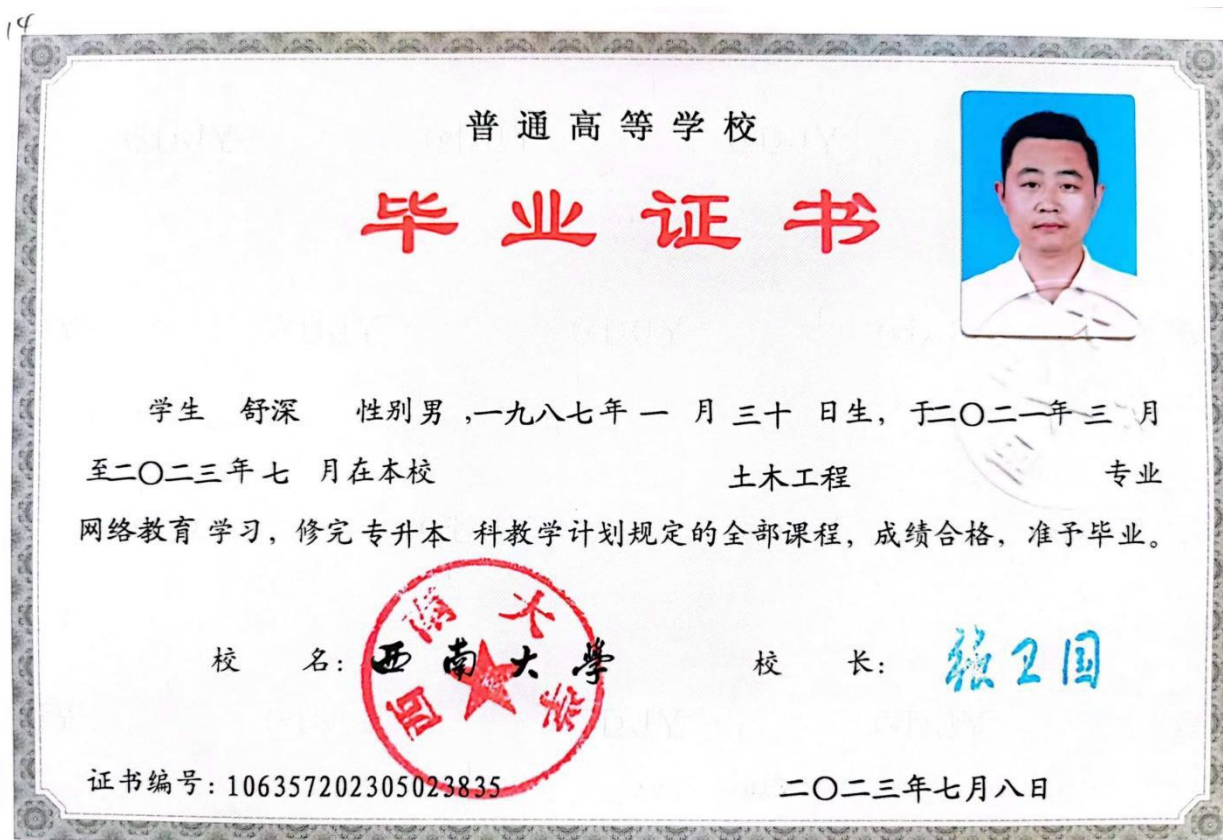 14
普通高等学校
毕业证书
学生 舒深 性别男,一九八七年一月三十日生,于二〇二一年三月
至二〇二三年七月在本校 土木工程 专业
网络教育学习,修完专升本科教学计划规定的全部课程,成绩合格,准予毕业。
校 名:西南大學 校 长:张卫国
西南大学
证书编号:106357202305023835 二〇二三年七月八日